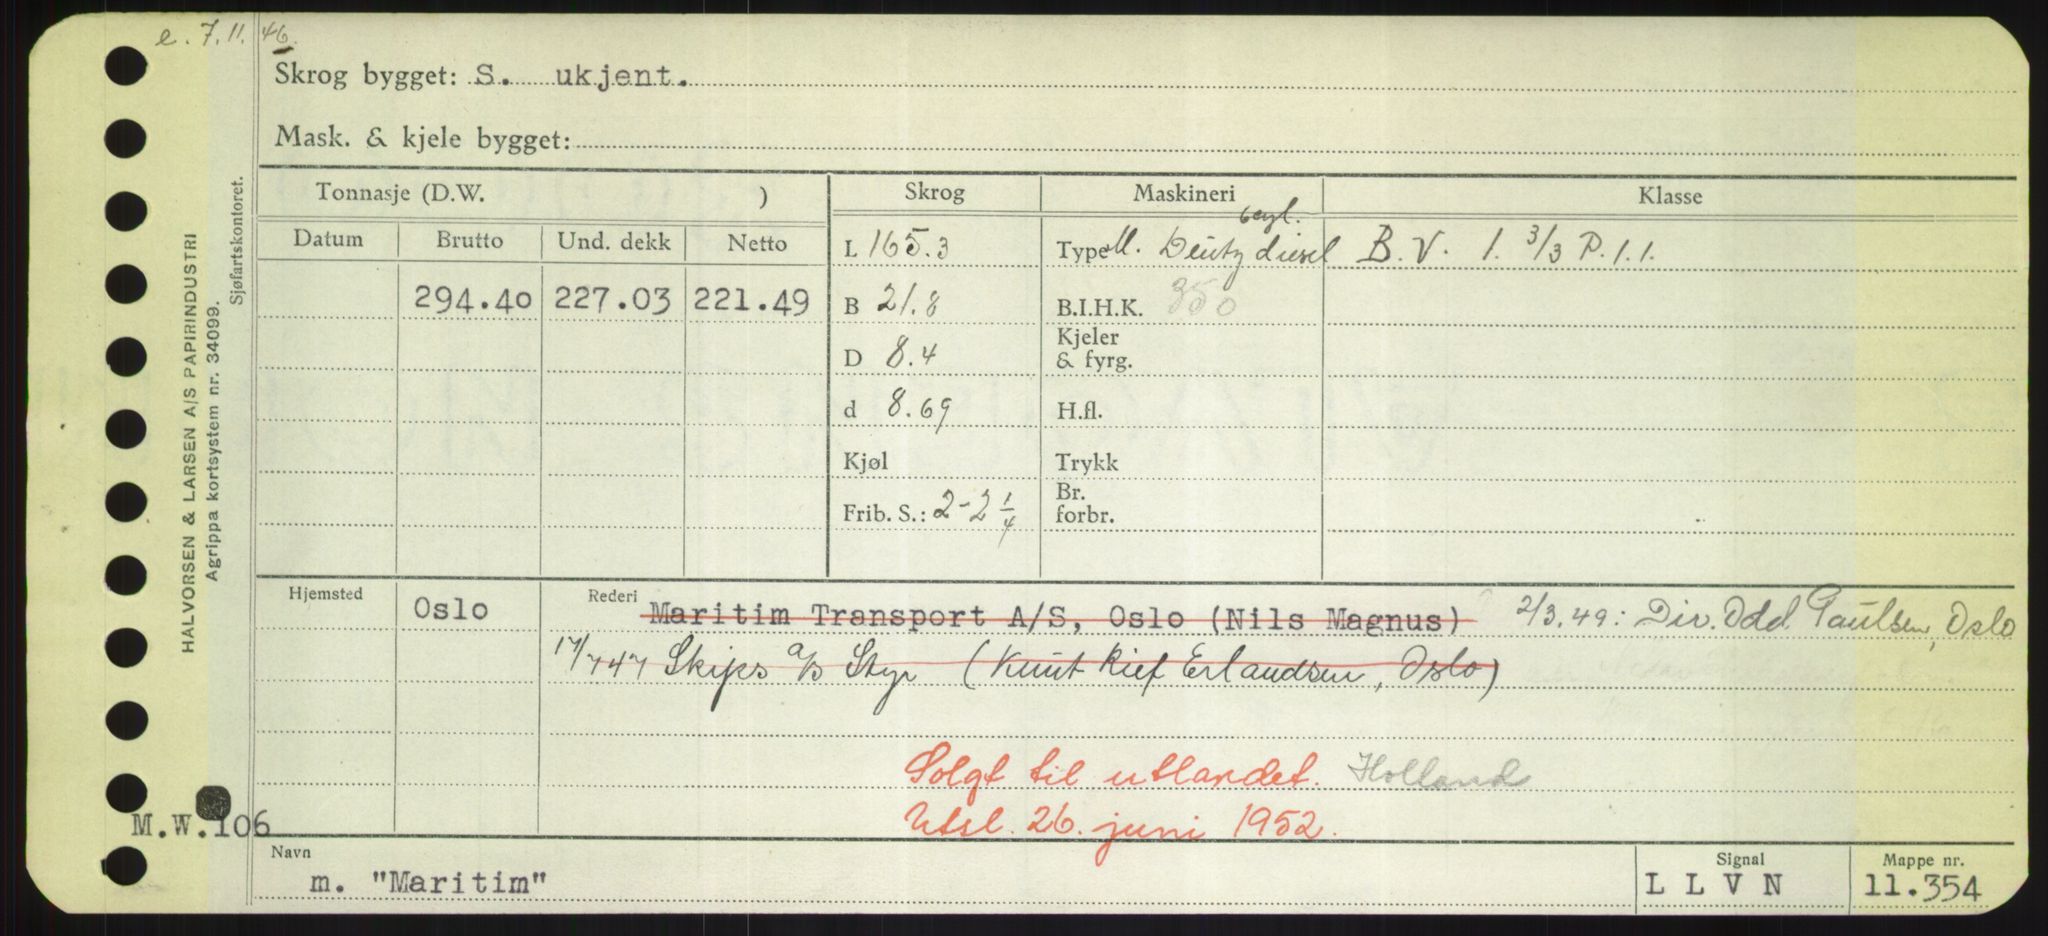 e. 7.11.46.
Skrog bygget: S. ukjent.
Mask. & kjele bygget:
HALVORSEN & LARSEN A/S PAPIRINDUSTRI
Agrippa kortsystem nr. 34099.
Sjøfartskontoret.
Tonnasje (D.W. ) Skrog Maskineri Klasse
Datum Brutto Und. dekk Netto
294.40 227.03 221.49
L 165.3
B 21.8
D 8.4
d 8.69
Kjøl
Frib. S.: 2-2 1/4
6 cyl.
Type M. Deutz diesel
B.I.H.K. 350
Kjeler
& fyrg.
H.fl.
Trykk
Br.
forbr.
B.V. 1. 3/3 P.1.1.
Hjemsted Oslo
Rederi Maritim Transport A/S, Oslo (Nils Magnus) 2/3.49: Div. Odd Paulsen, Oslo
17/7 47 Skips a/s Styr (Knut Kief Erlandsen, Oslo)
Solgt til utlandet. Holland
Utsl. 26. juni 1952.
M.W.106
Navn Signal Mappe nr.
m. "Maritim" L L V N 11.354